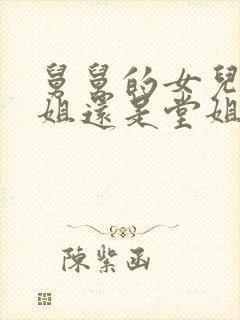 舅舅的女兒
姐還是堂姐
陳紫函